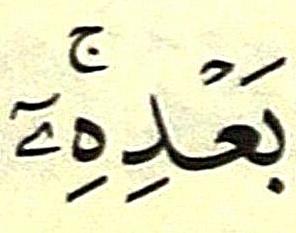 بَعْدِهِۦٓۚ